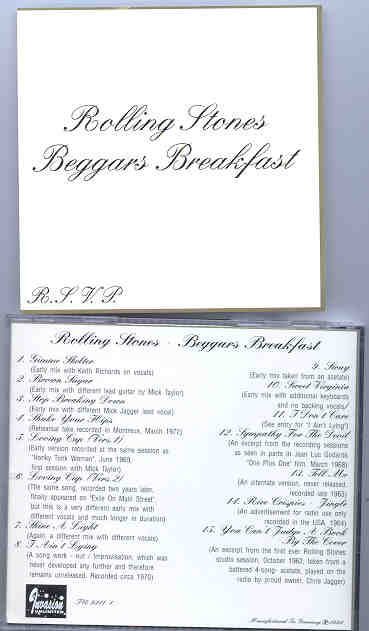 Rolling Stones
Beggars Breakfast
R.S.V.P.
Rolling Stones · Beggars Breakfast
1. Gimme Shelter
(Early mix with Keith Richards on vocals)
2. Brown Sugar
(Early mix with different lead guitar by Mick Taylor)
3. Stop Breaking Down
(Early mix with different Mick Jagger lead vocal)
4. Shake Your Hips
(Rehearsal take recorded in Montreux, March 1972)
5. Loving Cup (Vers. 1)
(Early version recorded at the same session as
"Honky Tonk Woman", June 1969,
first session with Mick Taylor)
6. Loving Cup (Vers. 2)
(The same song, recorded two years later,
finally appeared on "Exile On Main Street"
but this is a very different early mix with
different vocals and much longer in duration)
7. Shine A Light
(Again, a different mix with different vocals)
8. I Ain't Lying
(A song work - out / Improvisation, which was
never developed any further and therefore
remains unreleased. Recorded circa 1970)
9. Stony
(Early mix taken from an acetate)
10. Sweet Virginia
(Early mix with additional keyboards
and no backing vocals)
11. I Don't Care
(See entry for "I Ain't Lying")
12. Sympathy For The Devil
(An excerpt from the recording sessions
as seen in parts in Jean Luc Godards
"One Plus One" film, March 1968)
13. Tell Me
(An alternate version, never released,
recorded late 1963)
14. Rice Crispies - Jingle
(An advertisement for radio use only
recorded in the USA, 1964)
15. You Can't Judge A Book
By The Cover
(An excerpt from the first ever Rolling Stones
studio session, October 1962, taken from a
battered 4-song- acetate, played on the
radio by proud owner, Chris Jagger)
Invasion
UNLIMITED
Manufactured In Germany